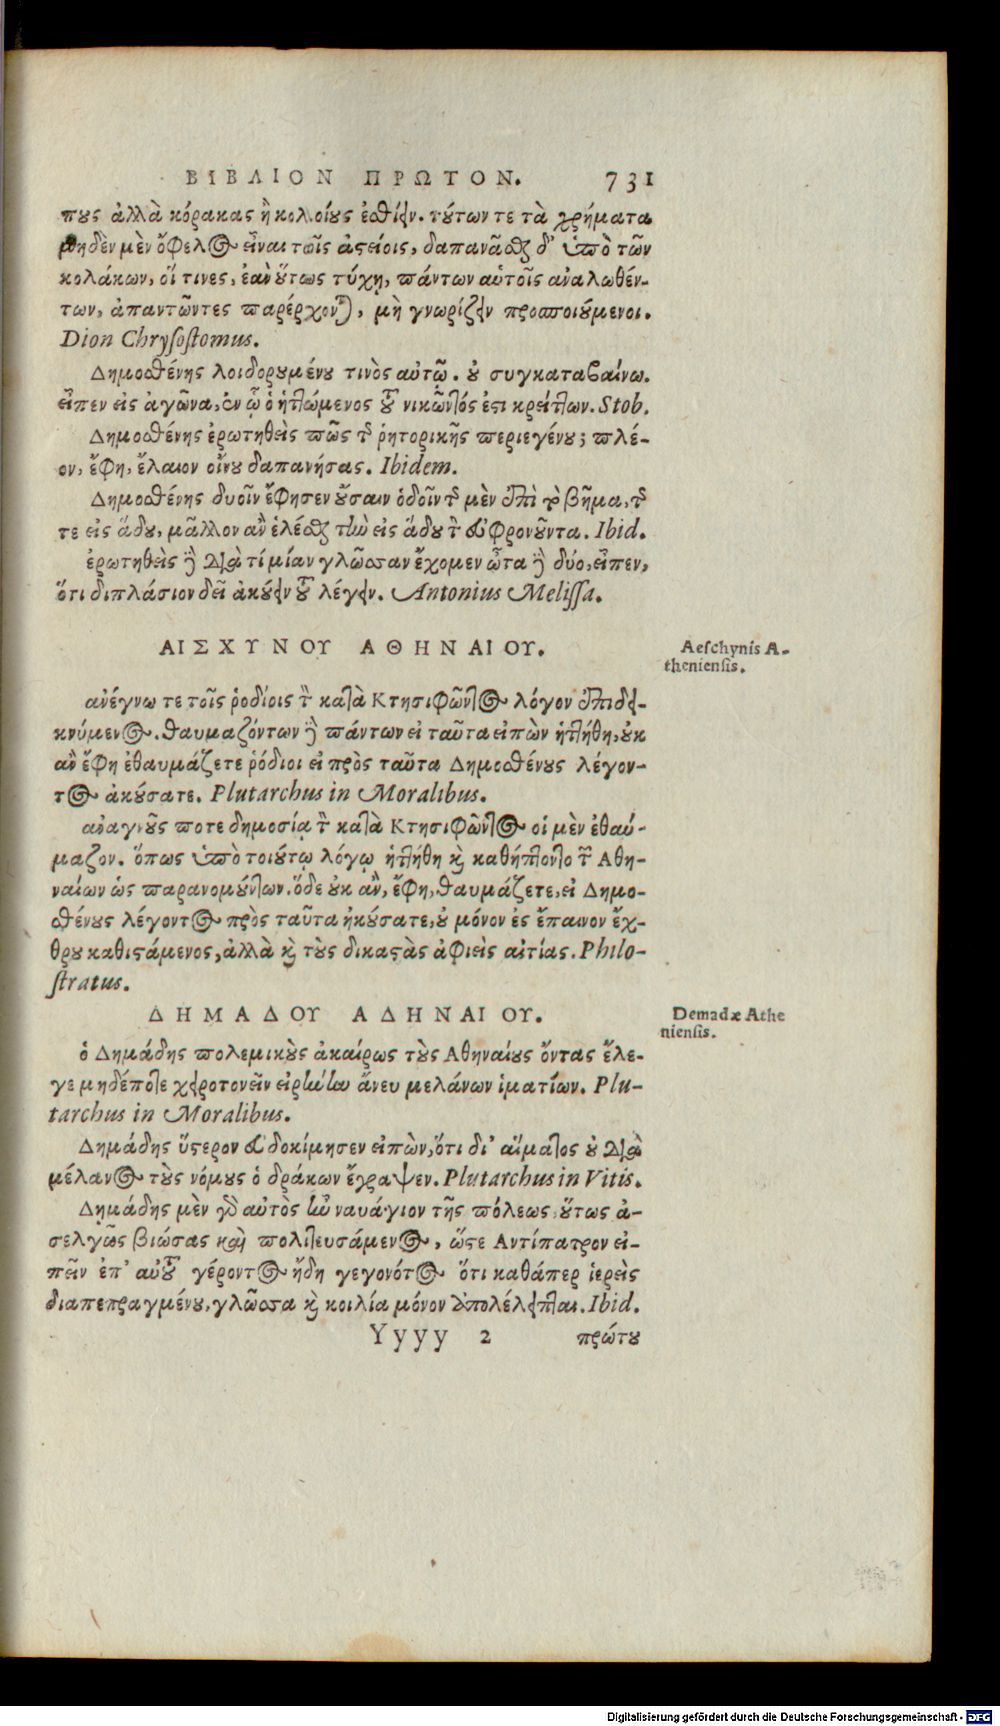 ΒΙΒΛΙΟΝ ΠΡΩΤΟΝ. 731
πους ἀλλὰ κόρακας ἢ κολοίους ἐσθίειν. τούτων τε τὰ χρήματα
μηδὲν μὲν ὄφελος εἶναι τοῖς ἀστείοις, δαπανᾶσθαι δ' ὑπὸ τῶν
κολάκων, οἵ τινες, ἐὰν οὕτως τύχῃ, πάντων αὐτοῖς ἀναλωθέν-
των, ἀπαντῶντες παρέρχονται, μὴ γνωρίζειν προσποιούμενοι.
Dion Chrysostomus.
Δημοσθένης λοιδορουμένου τινὸς αὐτῷ. οὐ συγκαταβαίνω.
εἶπεν εἰς ἀγῶνα, ἐν ᾧ ὁ ἡττώμενος τοῦ νικῶντός ἐστι κρείττων. Stob.
Δημοσθένης ἐρωτηθεὶς πῶς τῆς ῥητορικῆς περιεγένου; πλέ-
ον, ἔφη, ἔλαιον οἴνου δαπανήσας. Ibidem.
Δημοσθένης δυοῖν ἔφησεν οὔσαιν ὁδοῖν τῆς μὲν ἐπὶ τὸ βῆμα, τῆς
τε εἰς ᾅδου, μᾶλλον ἂν ἑλέσθαι τὴν εἰς ᾅδου τὸν εὖ φρονοῦντα. Ibid.
ἐρωτηθεὶς δὲ διὰ τί μίαν γλῶσσαν ἔχομεν ὦτα δὲ δύο, εἶπεν,
ὅτι διπλάσιον δεῖ ἀκούειν τοῦ λέγειν. Antonius Melissa.
ΑΙΣΧΥΝΟΥ ΑΘΗΝΑΙΟΥ.
Aeschynis A-
theniensis.
ἀνέγνω τε τοῖς ῥοδίοις τὸν κατὰ Κτησιφῶντος λόγον ἐπιδει-
κνύμενος. θαυμαζόντων δὲ πάντων εἰ ταῦτα εἰπὼν ἡττήθη, οὐκ
ἂν ἔφη ἐθαυμάζετε ῥόδιοι εἰ πρὸς ταῦτα Δημοσθένους λέγον-
τος ἀκούσατε. Plutarchus in Moralibus.
ἀναγνοῦς ποτε δημοσίᾳ τὸν κατὰ Κτησιφῶντος οἱ μὲν ἐθαύ-
μαζον. ὅπως ὑπὸ τοιούτῳ λόγῳ ἡττήθη καὶ καθήπτοντο τῶν Αθη-
ναίων ὡς παρανομούντων. ὅδε οὐκ ἂν, ἔφη, θαυμάζετε, εἰ Δημο-
σθένους λέγοντος πρὸς ταῦτα ἠκούσατε, οὐ μόνον ἐς ἔπαινον ἔχ-
θρου καθιστάμενος, ἀλλὰ καὶ τοὺς δικαστὰς ἀφιεὶς αἰτίας. Philo-
stratus.
ΔΗΜΑΔΟΥ ΑΔΗΝΑΙΟΥ.
Demadæ Athe
niensis.
ὁ Δημάδης πολεμικοὺς ἀκαίρως τοὺς Αθηναίους ὄντας ἔλε-
γε μηδέποτε χειροτονεῖν εἰρήνην ἄνευ μελάνων ἱματίων. Plu-
tarchus in Moralibus.
Δημάδης ὕστερον εὐδοκίμησεν εἰπὼν, ὅτι δι' αἵματος οὐ διὰ
μέλανος τοὺς νόμους ὁ δράκων ἔγραψεν. Plutarchus in Vitis.
Δημάδης μὲν γὰρ αὐτὸς ὢν ναυάγιον τῆς πόλεως, οὕτως ἀ-
σελγῶς βιώσας καὶ πολιτευσάμενος, ὥστε Αντίπατρον εἰ-
πεῖν ἐπ' αὐτοῦ γέροντος ἤδη γεγονότος ὅτι καθάπερ ἱερεῖς
διαπεπραγμένου, γλῶσσα καὶ κοιλία μόνον ἀπολέλειπται. Ibid.
Yyyy 2 πρώτου
Digitalisierung gefördert durch die Deutsche Forschungsgemeinschaft - DFG